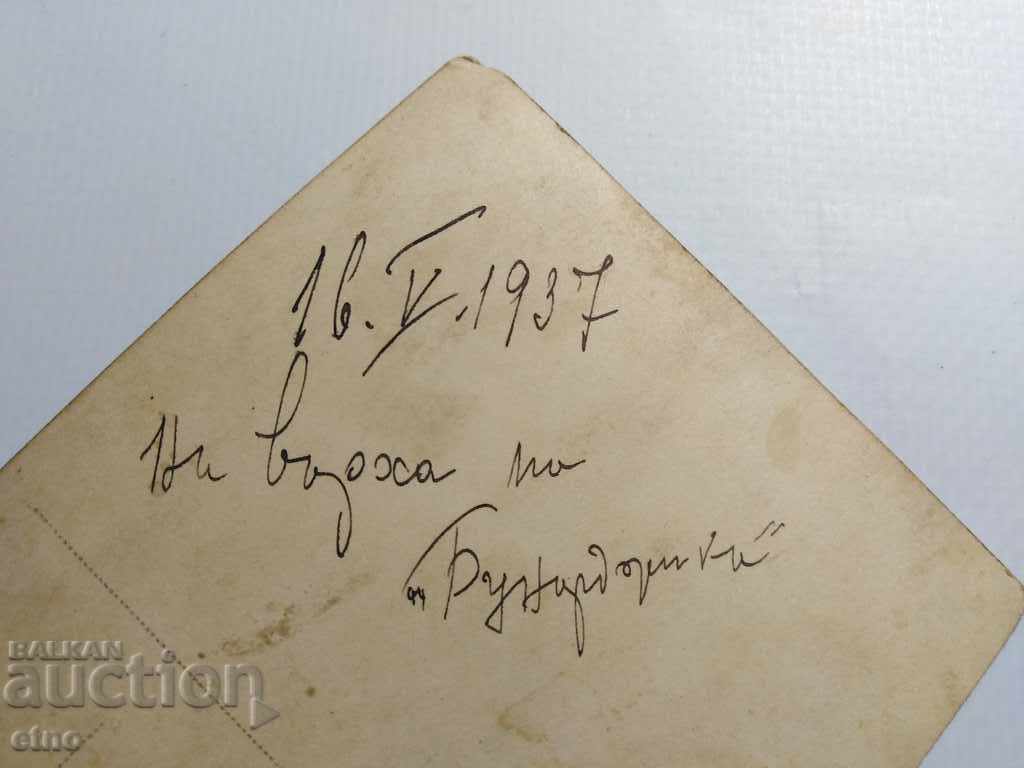 16.V.1937
На върха на
„Бунарджика“
BALKAN
auction
etno